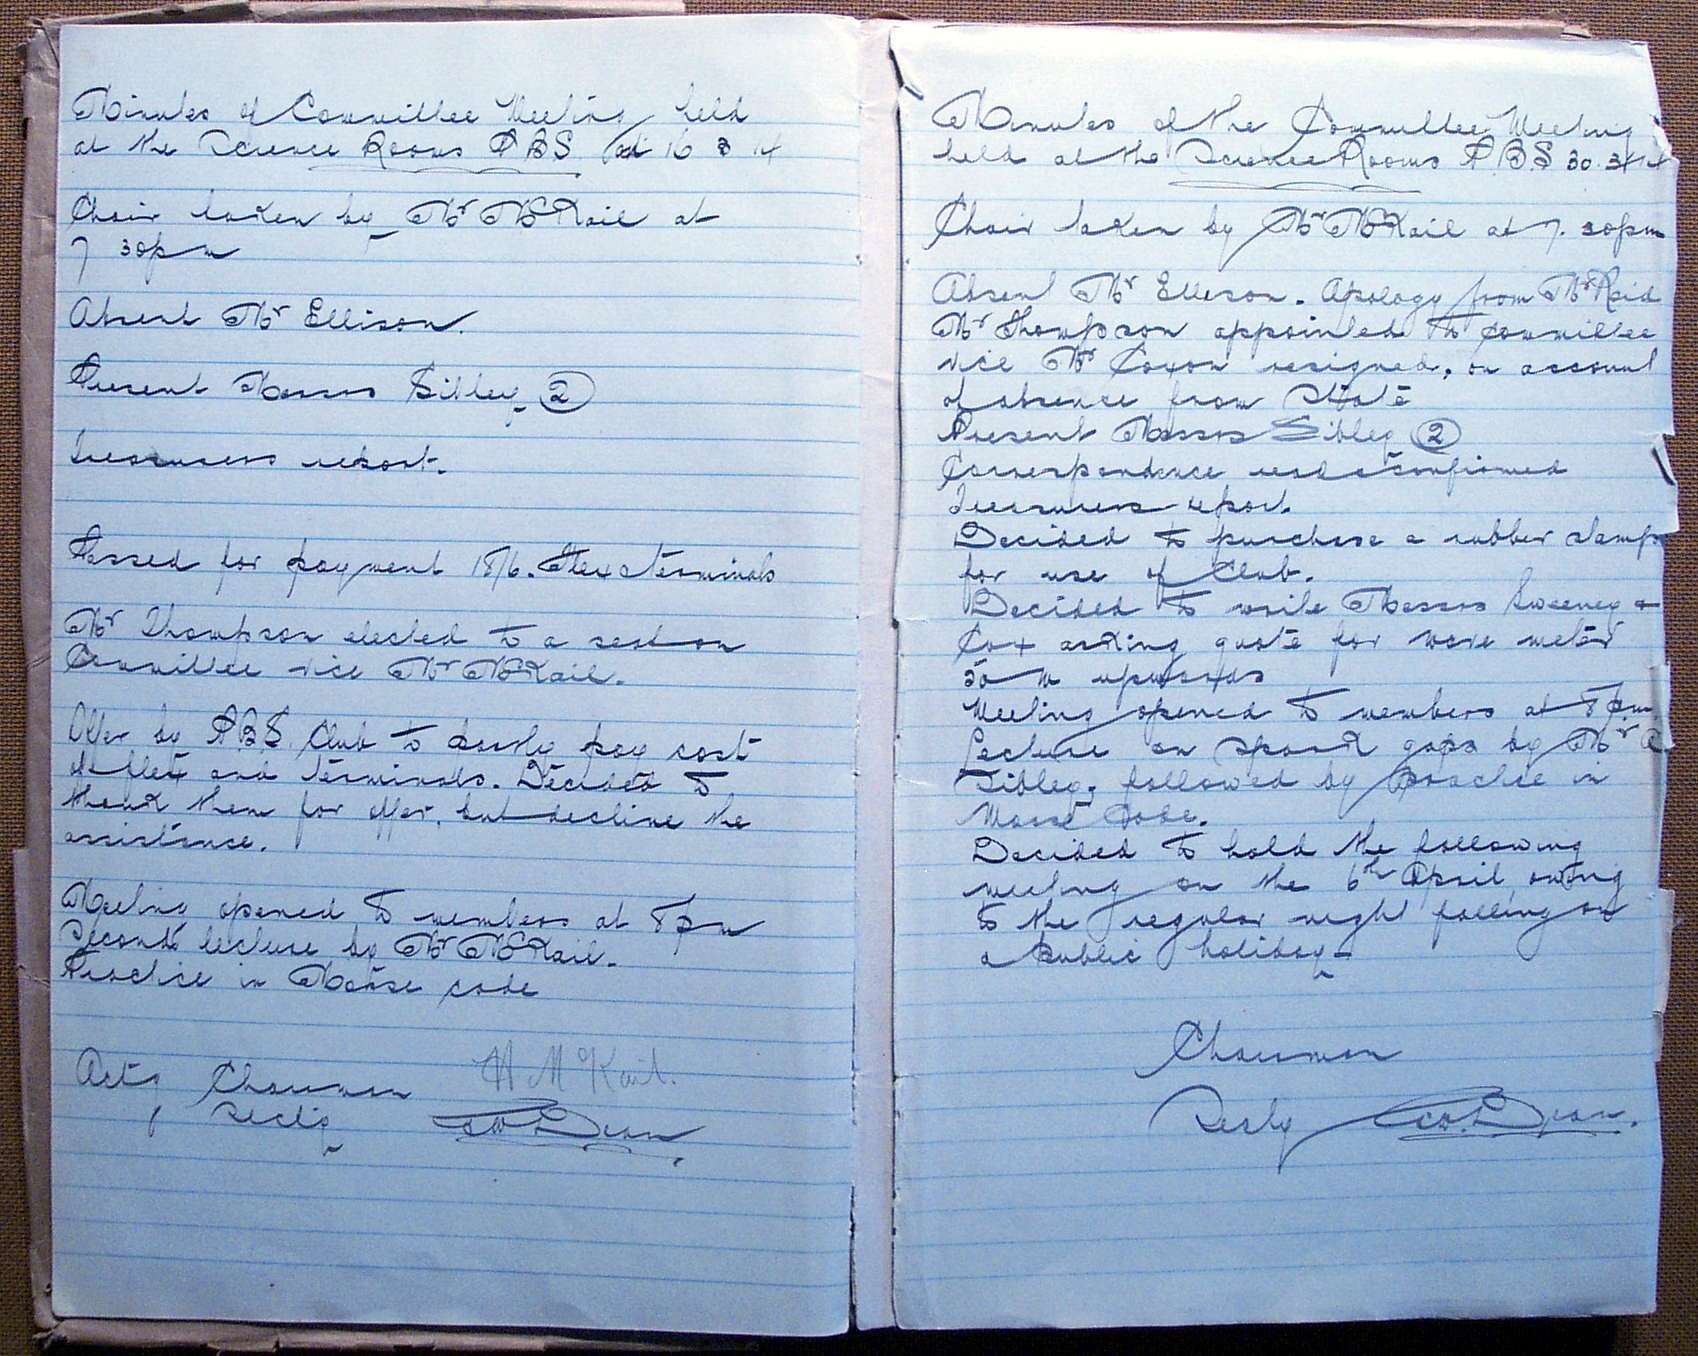 Minutes of Committee Meeting held
at the Science Rooms P.B.S. 16 3 14
Chair taken by Mr McKail at
7 30pm
Absent Mr Ellison.
Present Messrs Sibley (2)
Treasurers report.
Passed for payment 18/6. Flex & terminals
Mr Thompson elected to a seat on
Committee vice Mr McKail.
Offer by P.B.S. Club to partly pay cost
of flex and terminals. Decided to
thank them for offer, but decline the
assistance.
Meeting opened to members at 8pm
Second lecture by Mr McKail.
Practice in Morse code
Actg Chairman H McKail.
Secty Dean
Minutes of the Committee Meeting
held at the Science Rooms P.B.S 30.3.14
Chair taken by Mr McKail at 7.30pm
Absent Mr Ellison. Apology from Mr Reid
Mr Thompson appointed to Committee
vice Mr Coxon resigned, on account
of absence from State
Present Messrs Sibley (2)
Correspondence read & confirmed
Treasurers report.
Decided to purchase a rubber stamp
for use of Club.
Decided to write Messrs Sweeney &
Cox asking quote for wave meter
50 m upwards
Meeting opened to members at 8 p.m.
Lecture on spark gaps by Mr
Sibley, followed by practice in
Morse Code.
Decided to hold the following
meeting on the 6th April, owing
to the regular night falling on
a Public holiday
Chairman
Secty Dean.